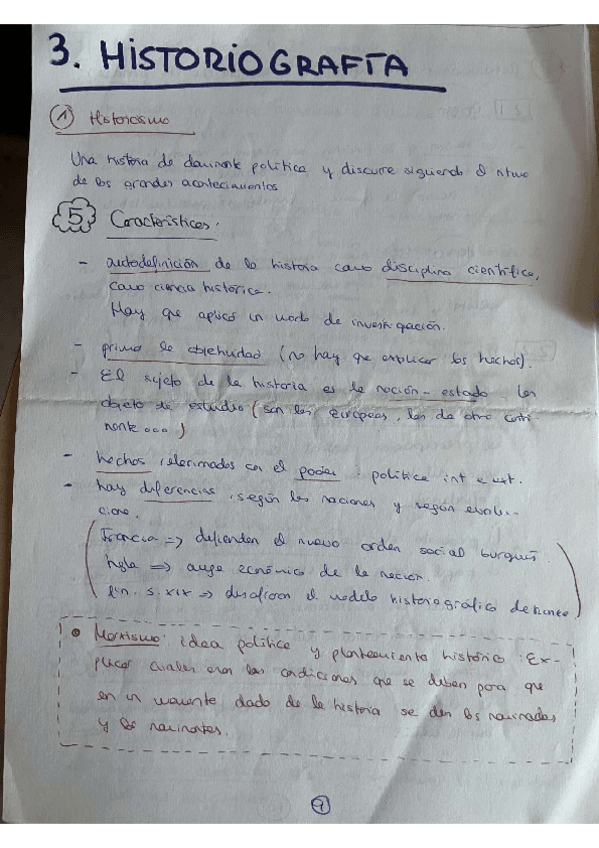 3. HISTORIOGRAFÍA
1 Historicismo
Una historia de dominante política y discurre siguiendo el ritmo
de los grandes acontecimientos
5 Características:
- autodefinición de la historia como disciplina científica,
como ciencia histórica.
Hay que aplicar un modo de investigación.
- prima la objetividad (no hay que explicar los hechos).
- El sujeto de la historia es la nación-estado. los
objeto de estudio (son los europeos, los de otro conti-
nente...)
- hechos relacionados con el poder política int e ext.
- hay diferencias según las naciones y según evolu-
cione.
Francia => defienden el nuevo orden social burgués
Ingla => auge económico de la nación.
fin. s. XIX => desafiaron el modelo historiográfico
• Marxismo: idea política y planteamiento histórico: Ex-
plicar cuales eran las condiciones que se deben para que
en un momento dado de la historia se den los
y los
7